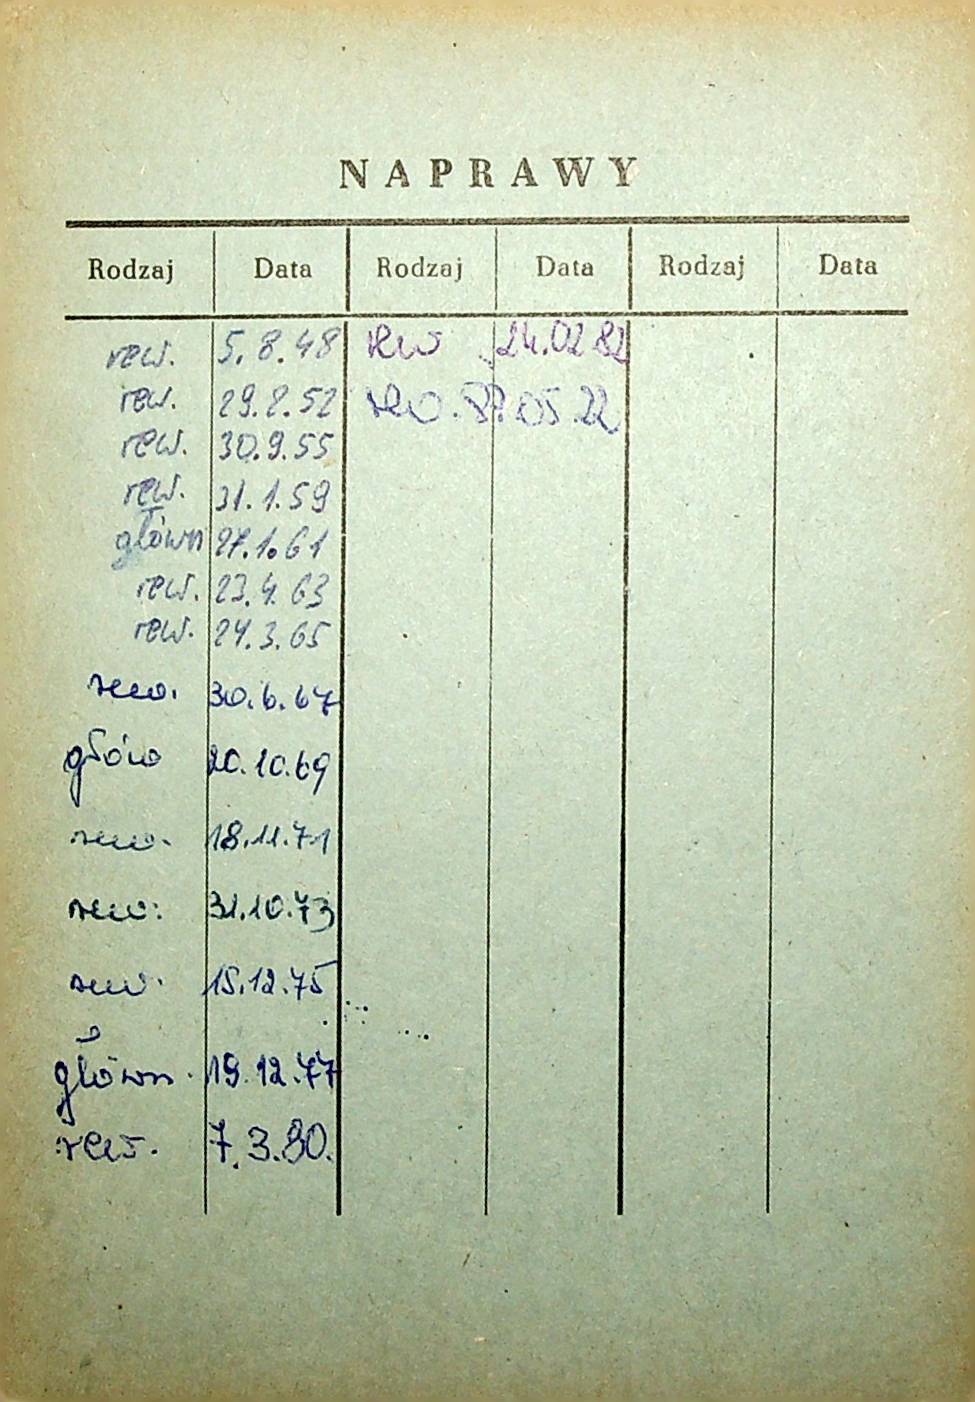 NAPRAWY
Rodzaj Data Rodzaj Data Rodzaj Data
rew. 5.8.48 rew 24.02.82
rew. 29.2.52 rew. 87.05.22
rew. 30.9.55
rew. 31.1.59
główn 27.1.61
rew. 23.4.63
rew. 24.3.65
rew. 30.6.67
główn 20.10.69
rew. 18.11.71
rew. 31.10.73
rew. 15.12.75
główn. 19.12.77
rew. 7.3.80.